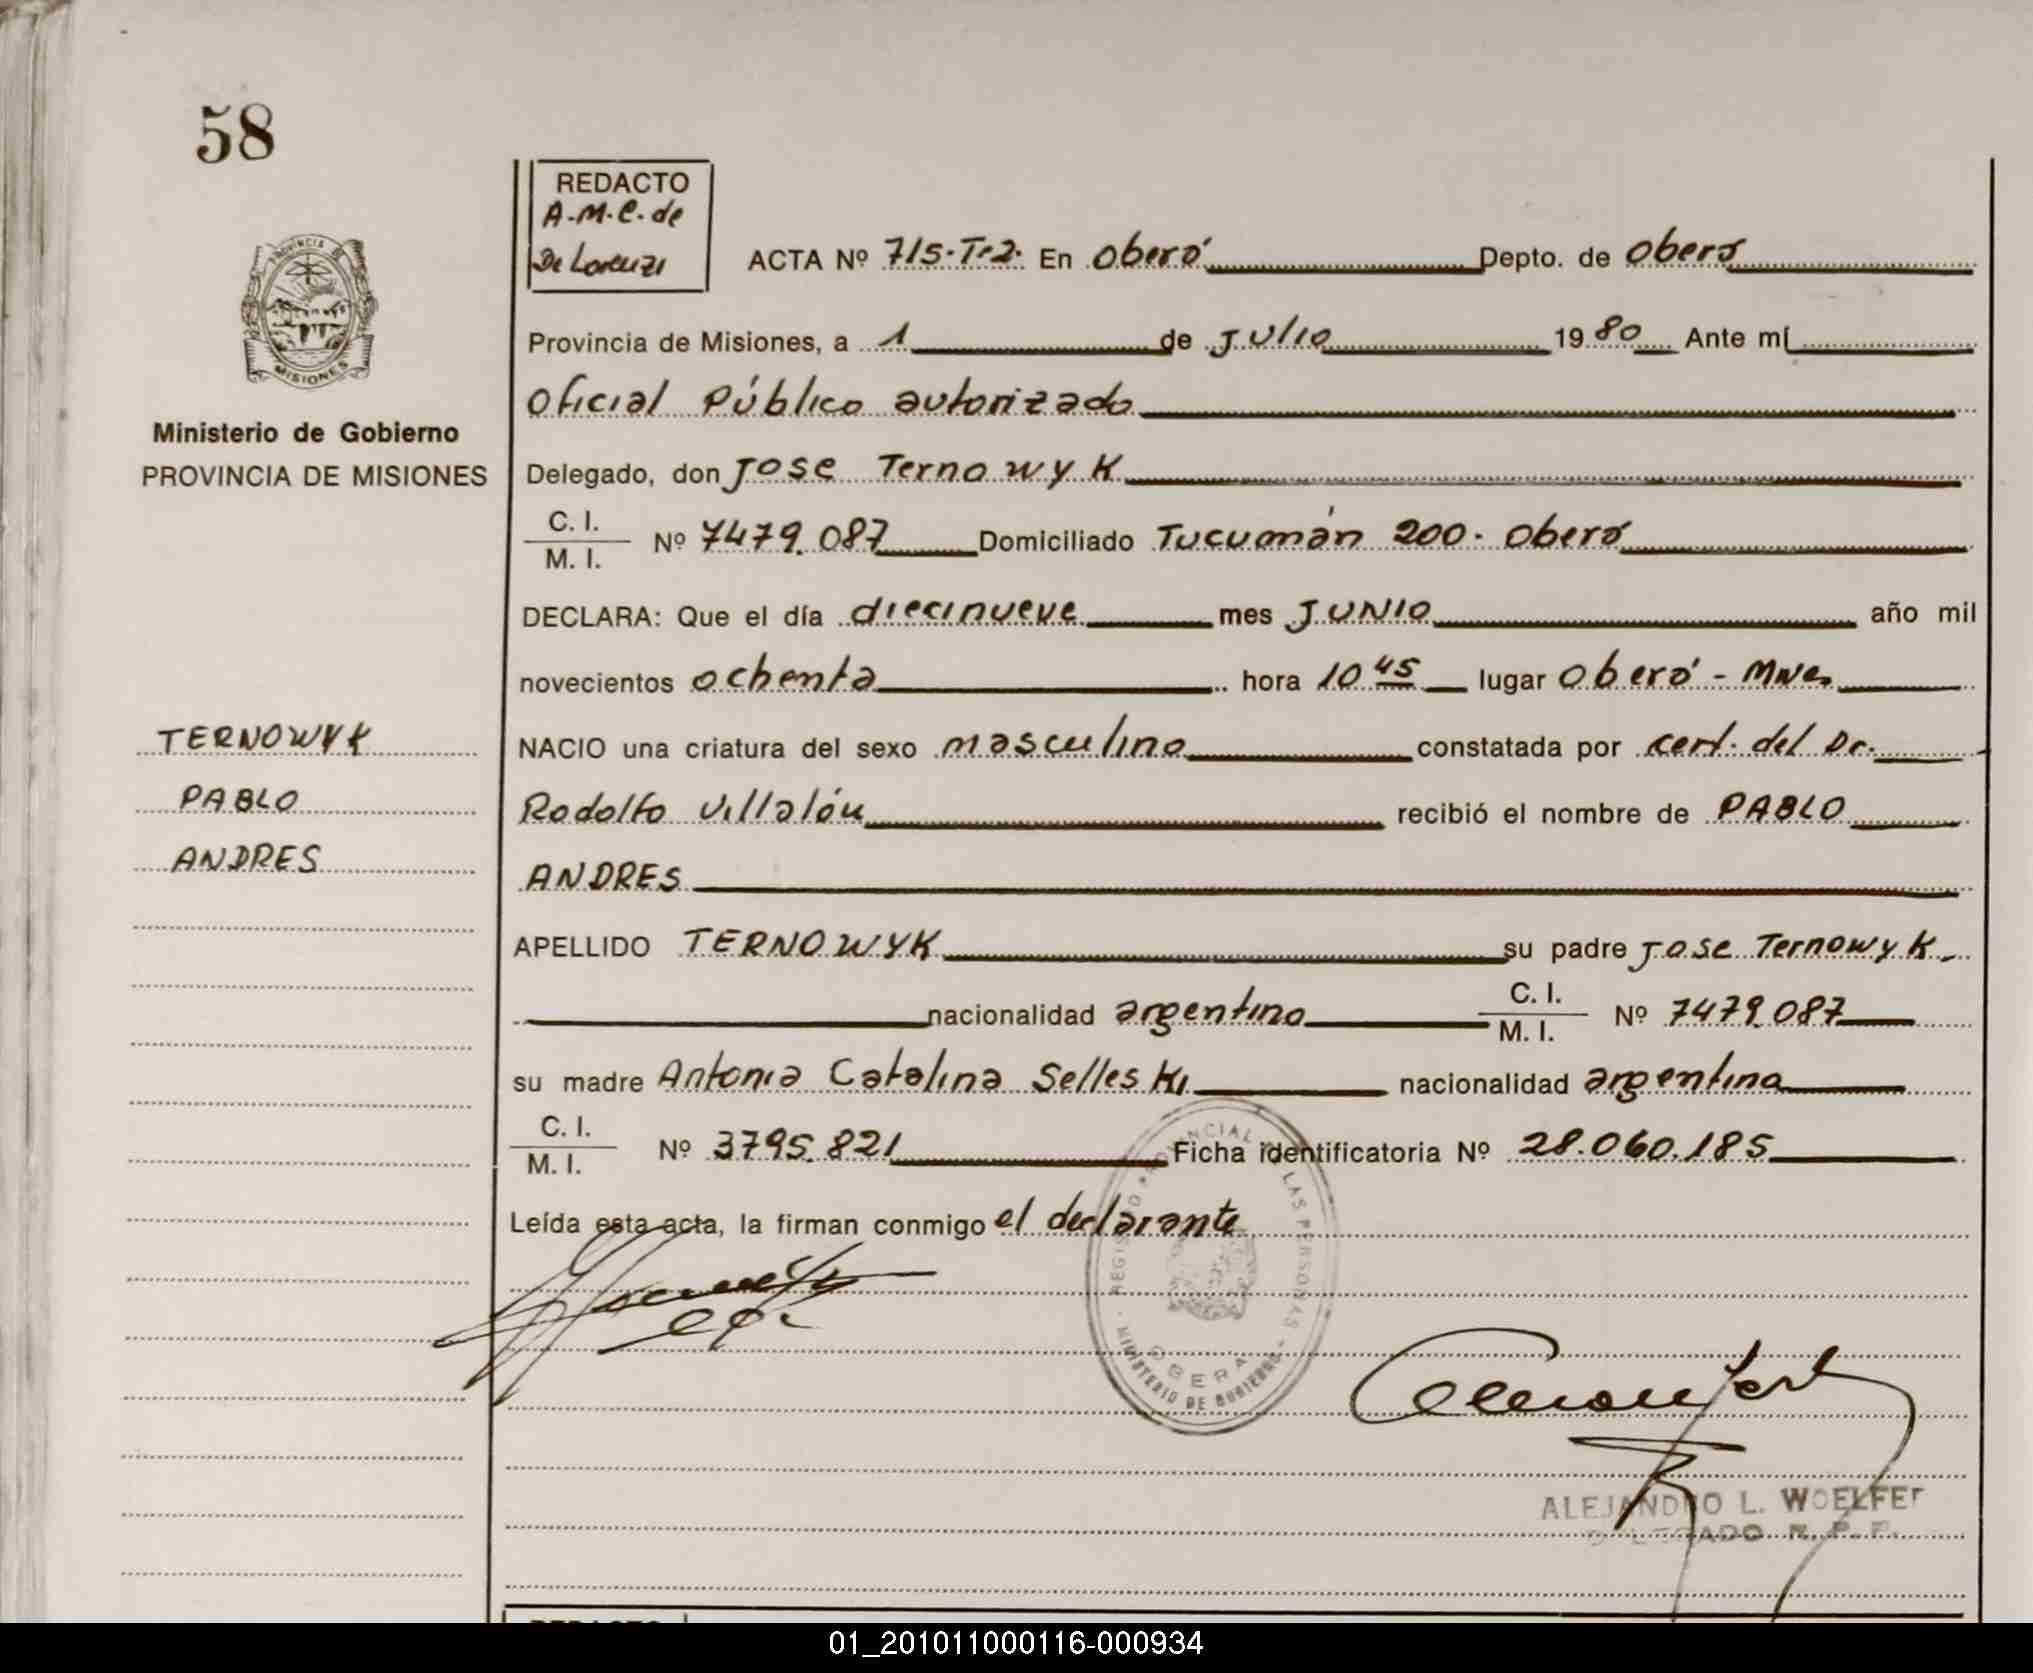 58
REDACTO
A.M.C. de
De Lorenzi
ACTA Nº 715.T-2. En Oberá Depto. de Oberá
PROVINCIA DE
MISIONES
Provincia de Misiones, a 1 de Julio 1980 Ante mí
Oficial Público autorizado
Ministerio de Gobierno
PROVINCIA DE MISIONES
Delegado, don Jose Ternowyk
C. I.
M. I. Nº 7479.087 Domiciliado Tucumán 200. Oberá
DECLARA: Que el día diecinueve mes JUNIO año mil
novecientos ochenta hora 10 45 lugar Oberá - Mnes
TERNOWYK
NACIO una criatura del sexo masculino constatada por cert. del Dr.
PABLO
Rodolfo Villalón recibió el nombre de PABLO
ANDRES
ANDRES
APELLIDO TERNOWYK su padre Jose Ternowyk
nacionalidad argentino C. I.
M. I. Nº 7479.087
su madre Antonia Catalina Selleski nacionalidad argentina
C. I.
M. I. Nº 3795.821 Ficha identificatoria Nº 28.060.185
Leída esta acta, la firman conmigo el declarante
REGISTRO PROVINCIAL DE LAS PERSONAS
OBERA
MINISTERIO DE GOBIERNO
ALEJANDRO L. WOELFERT
DELEGADO R. P. P.
REDACTO
01_201011000116-000934